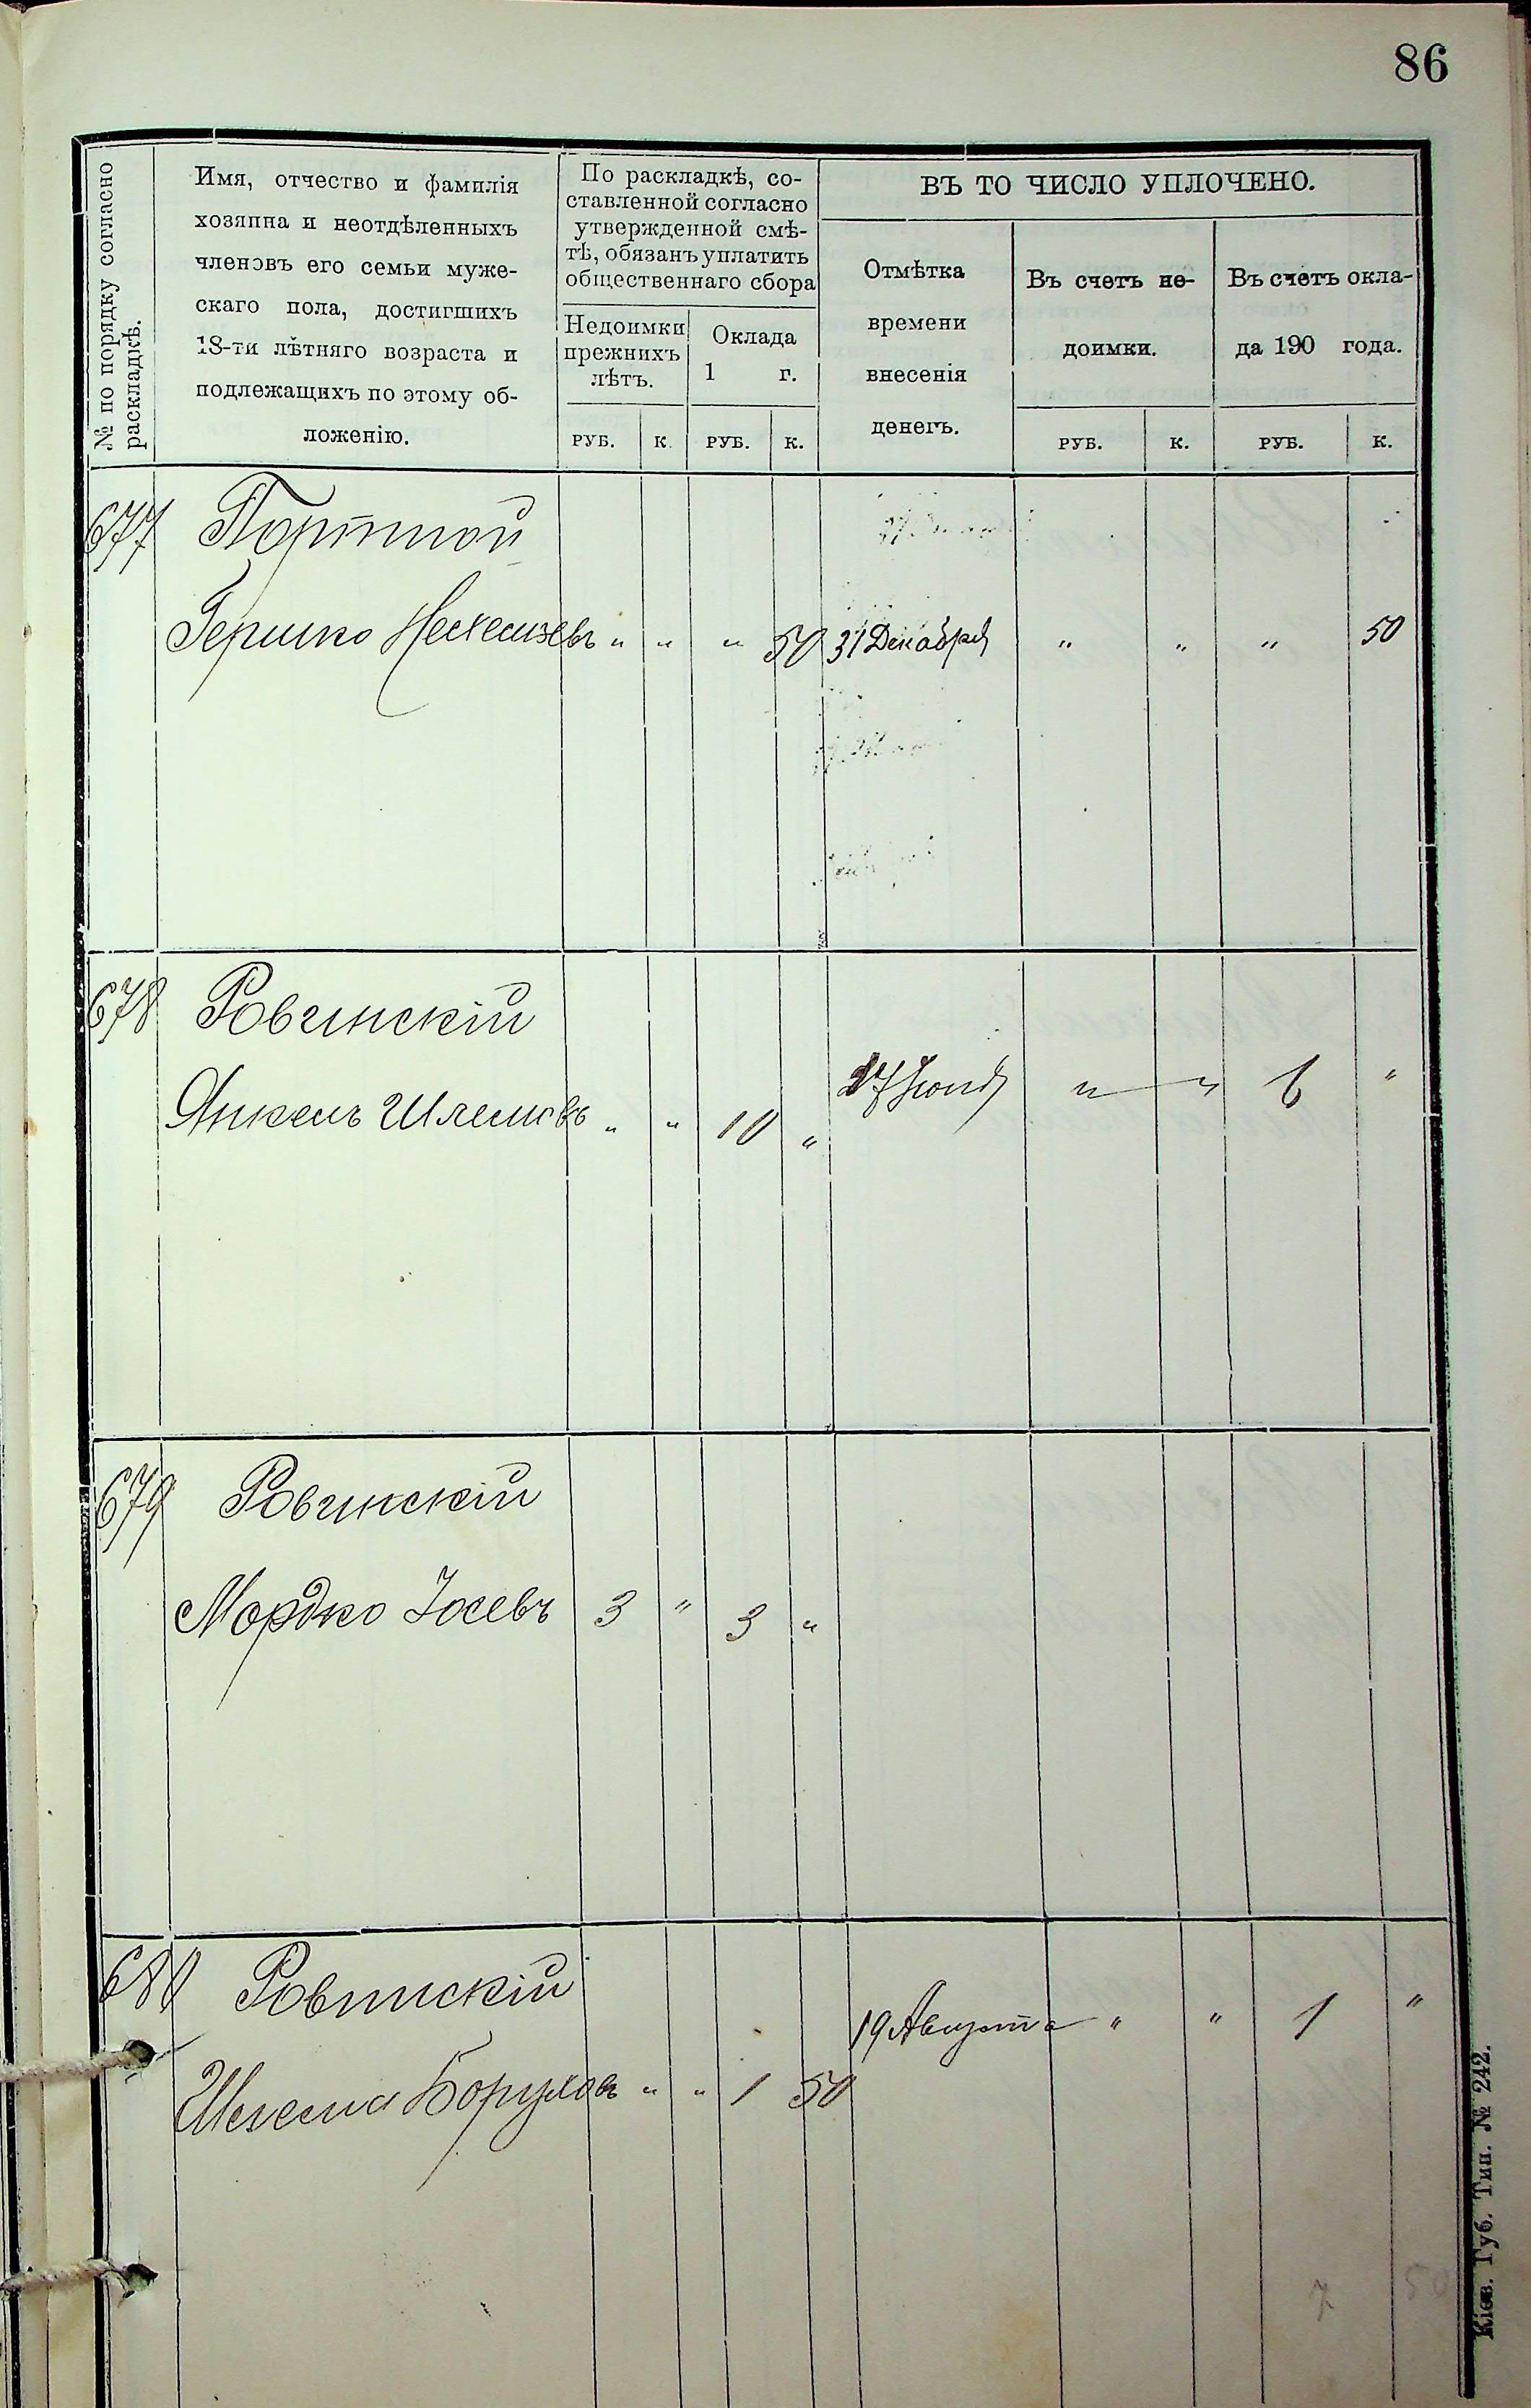 86
№ по порядку согласно раскладкѣ.
Имя, отчество и фамилія
хозяина и неотдѣленныхъ
членовъ его семьи муже-
скаго пола, достигшихъ
18-ти лѣтняго возраста и
подлежащихъ по этому об-
ложенію.
По раскладкѣ, со-
ставленной согласно
утвержденной смѣ-
тѣ, обязанъ уплатить
общественнаго сбора
Недоимки
прежнихъ
лѣтъ.
Оклада
1 г.
ВЪ ТО ЧИСЛО УПЛОЧЕНО.
Отмѣтка
времени
внесенія
денегъ.
Въ счетъ не-
доимки.
Въ счетъ окла-
да 190 года.
РУБ. К. РУБ. К. РУБ. К. РУБ. К.
677 Портной
Гершко " " " 50 31 Декабря " " " 50
678 Ровинскій
Янкель Шлемовъ " " 10 " 17 Іюня " " 6 "
679 Ровинскій
Мордко Іосевъ 3 " 3 "
680 Ровинскій
19 Августа " " 1 "
Шлема Боруховъ " " 1 50
7 50
Кіев. Губ. Тип. № 242.